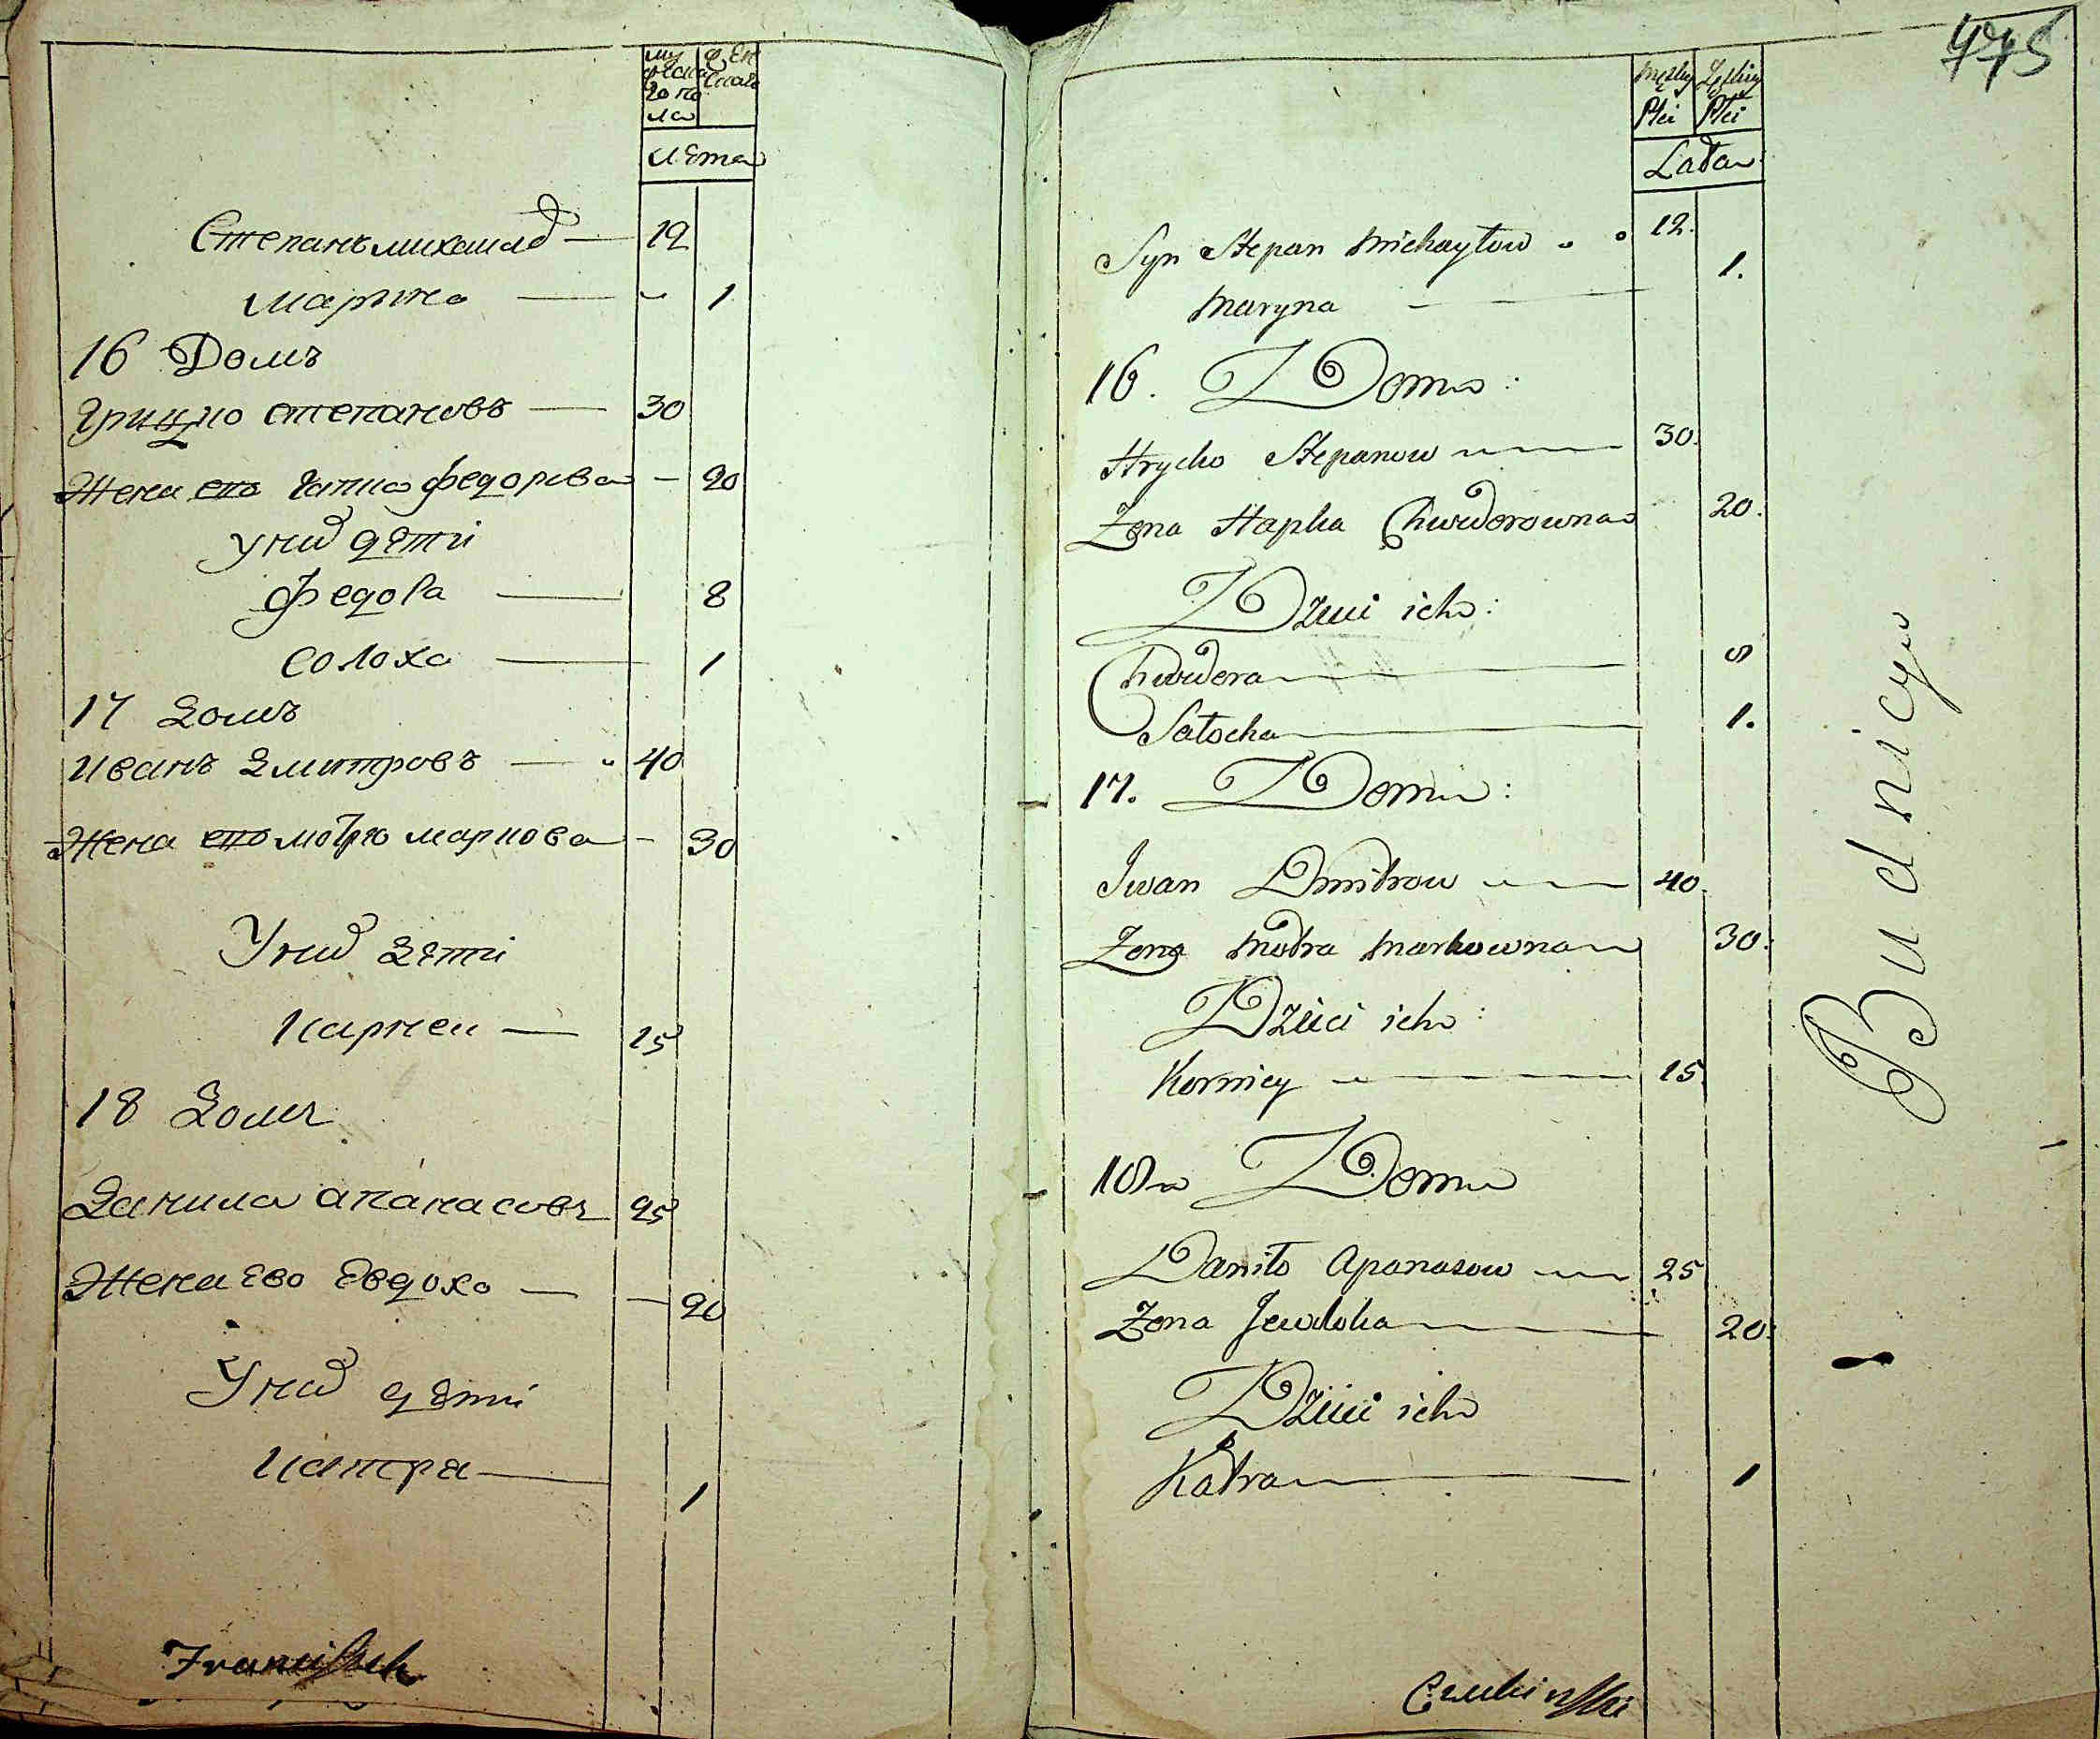 мужеска го по ла
женскаго
лета
Степанъ михаилов 12
марина 1
16 Домъ
Грицко степановъ 30
Жена его гапка федорова 20
у них дети
федора 8
солоха 1
17 домъ
иванъ дмитровъ 40
Жена его мотря маркова 30
У них дети
карней 15
18 домъ
данила апанасовъ 25
Жена ево евдоха 20
У них дети
катра 1
Franciszek
775
Męzkiy Płci
Żeńskiy Płci
Lata
Syn Stepan Michayłow 12.
Maryna 1.
16. Dom:
Hrycko Stepanow 30.
Zona Hapka Chwedorowna 20.
Dzieci ich:
Chwedora 8
Sałocha 1.
17. Dom:
Iwan Dmitrow 40.
Zona Motra Markowna 30.
Dzieci ich:
Korniey 15.
18 Dom
Daniło Apanasow 25
Zona Jewdoka 20.
Dzieci ich
Katra 1
Budnicy